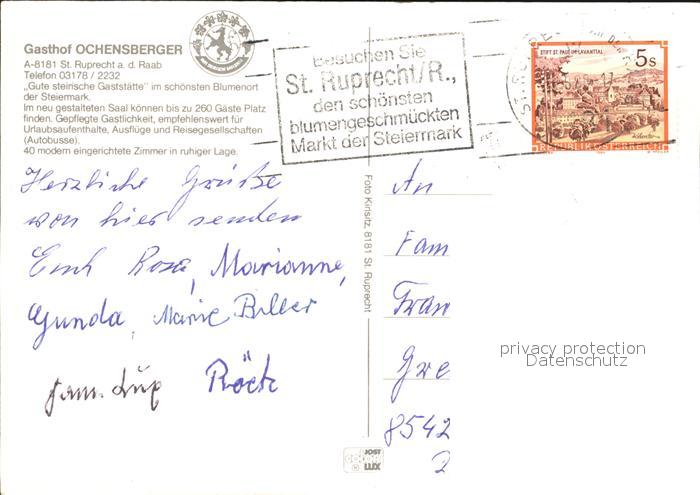 Gasthof OCHENSBERGER
A-8181 St. Ruprecht a. d. Raab
Telefon 03178 / 2232
„Gute steirische Gaststätte" im schönsten Blumenort
der Steiermark.
Im neu gestalteten Saal können bis zu 260 Gäste Platz
finden. Gepflegte Gastlichkeit, empfehlenswert für
Urlaubsaufenthalte, Ausflüge und Reisegesellschaften
(Autobusse).
40 modern eingerichtete Zimmer in ruhiger Lage.
Besuchen Sie
St. Ruprecht/R.,
den schönsten
blumengeschmückten
Markt der Steiermark
STIFT ST. PAUL IM LAVANTTAL
5s
REPUBLIK ÖSTERREICH
Herzliche Grüße
von hier senden
Euch Rosa, Marianne,
Gunda, Marie
Fam.
Foto Kirisitz, 8181 St. Ruprecht
An
Fam
Fran
8542
privacy protection
Datenschutz
JOST
COLOR
LUX